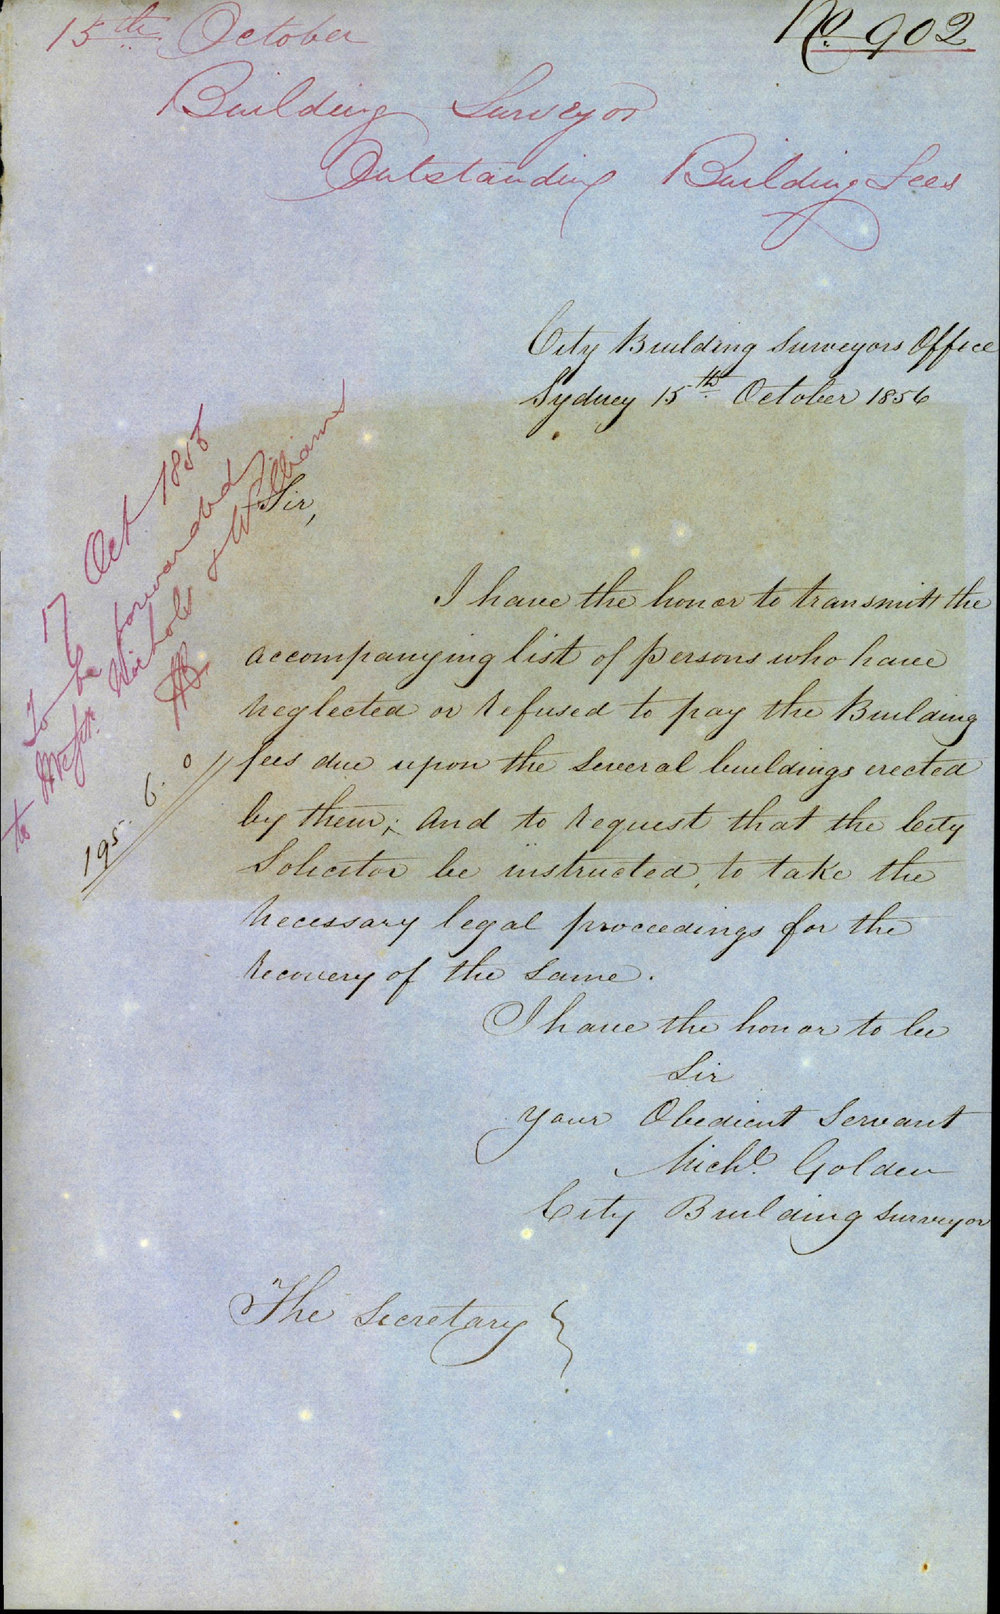 No. 902
15th October
Building Surveyor
Outstanding Building Fees
City Building Surveyors Office
Sydney 15th October 1856
Sir,
I have the honor to transmitt the
accompanying list of persons who have
neglected or refused to pay the Building
fees due upon the several buildings erected
by them; And to request that the City
Solicitor be instructed, to take the
necessary legal proceedings for the
recovery of the same.
I have the honor to be
Sir
your Obedient Servant
Michl. Golden
City Building Surveyor
The Secretary
17 Oct 1856
To be forwarded
to Messrs. Nichols & Williams
195. 6. 0